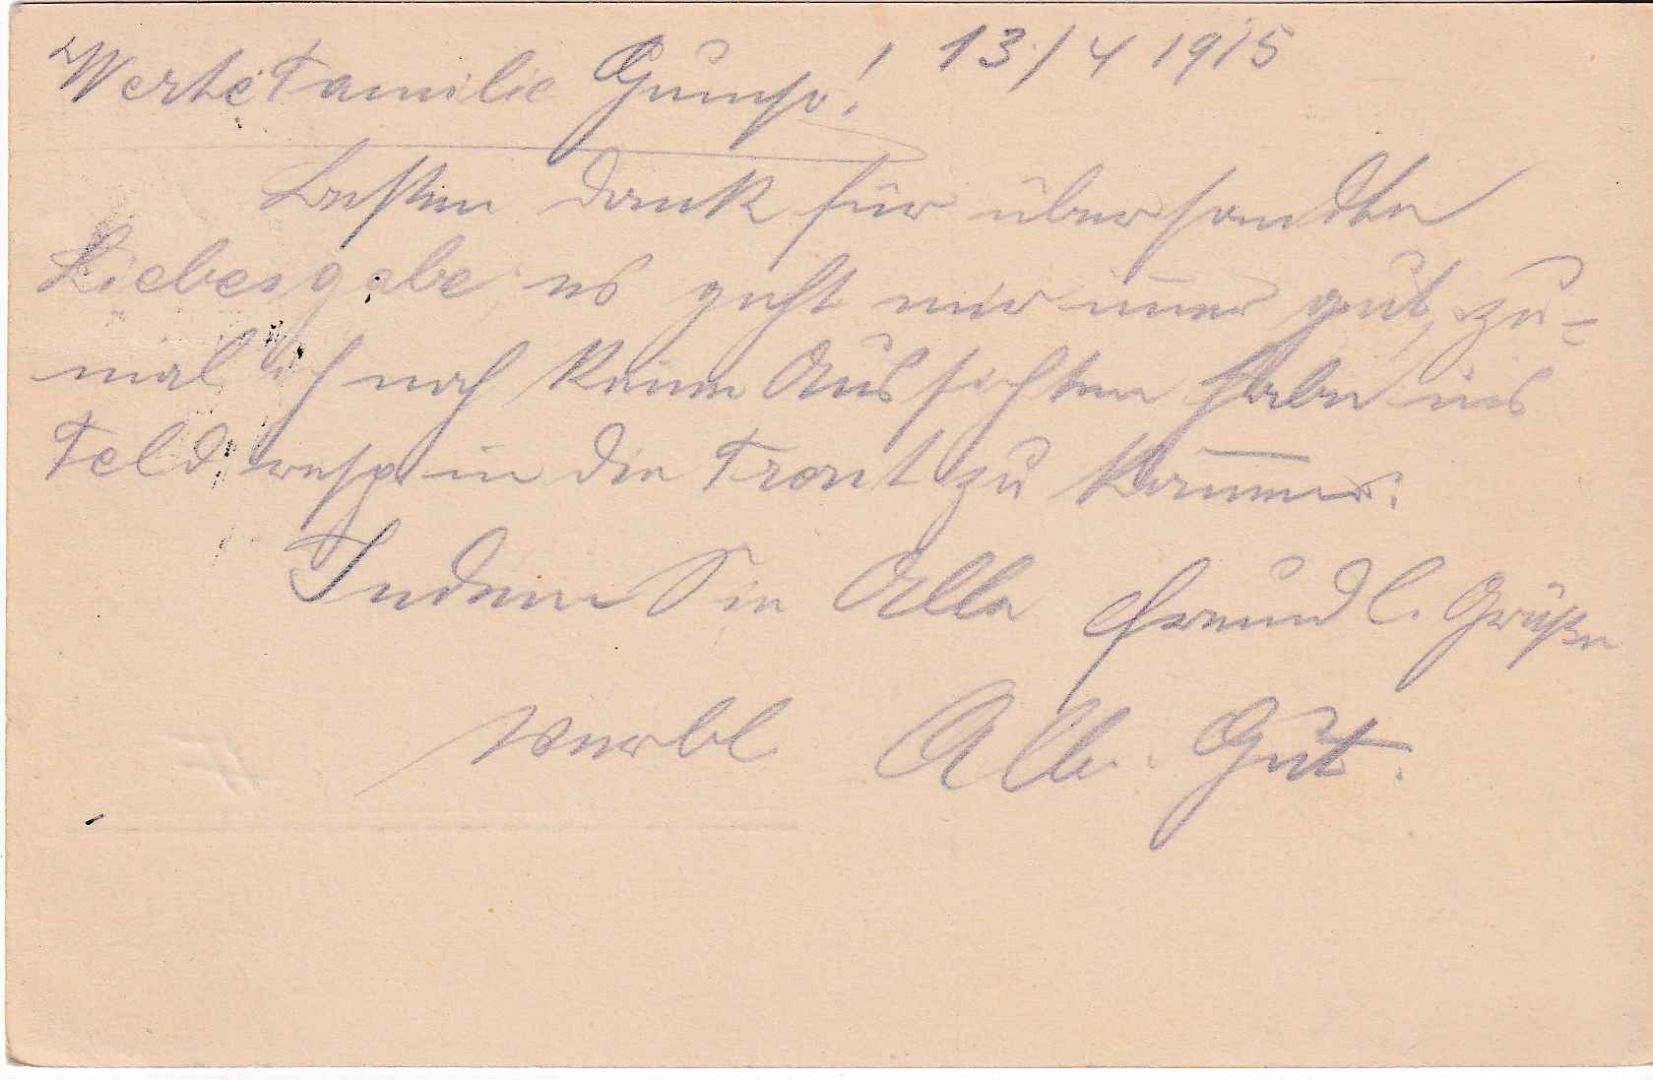 Werte Familie Gump! 13/4 1915
Besten Dank für übersandte
Liebesgabe es geht mir imer gut, zu=
mal ich noch keine Aussichten habe ins
Feld resp. in die Front zu komen.
Indem Sie Alle freundl. Grüße
verbl. Alb. Gut.